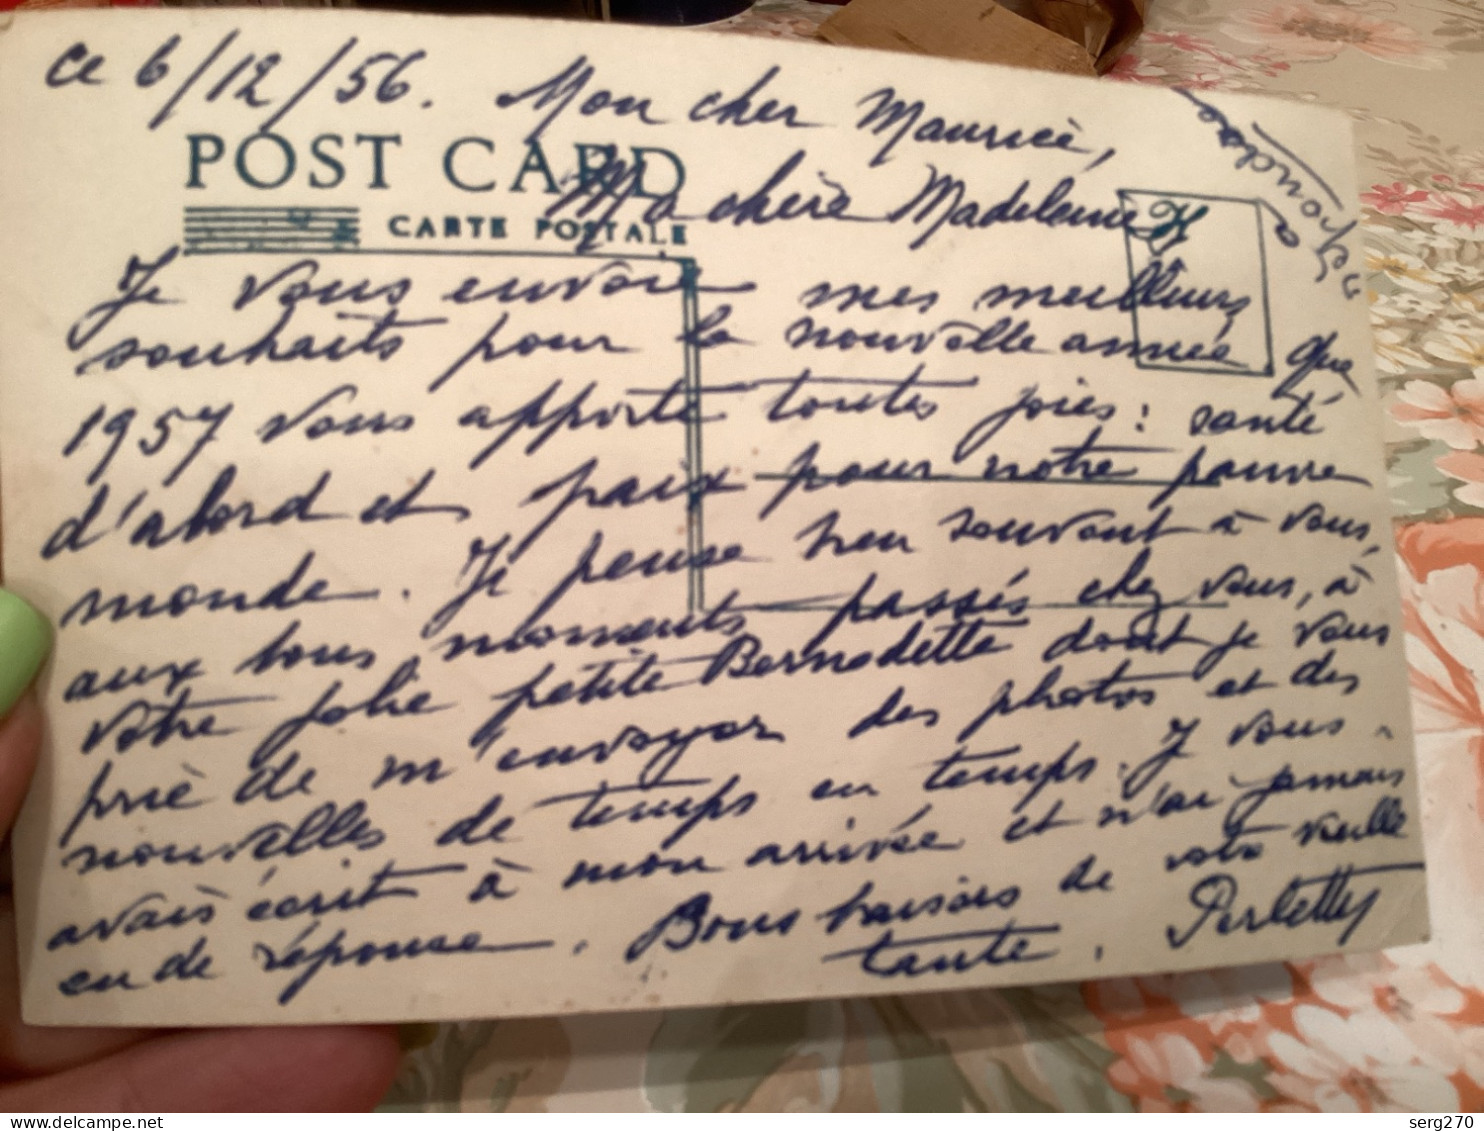 ce 6/12/56. Mon cher Maurice,
POST CARD
Ma chère Madeleine
CARTE POSTALE
Je vous envoie mes meilleurs
souhaits pour la nouvelle année que
1957 vous apporte toutes joies : santé
d'abord et paix pour notre pauvre
monde. Je pense bien souvent à vous,
aux bons moments passés chez vous, à
votre jolie petite Bernadette dont je vous
prie de m'envoyer des photos et des
nouvelles de temps en temps. Je vous
avais écrit à mon arrivée et n'ai jamais
eu de réponse. Bons baisers de votre vieille
tante.
répondre
serg270